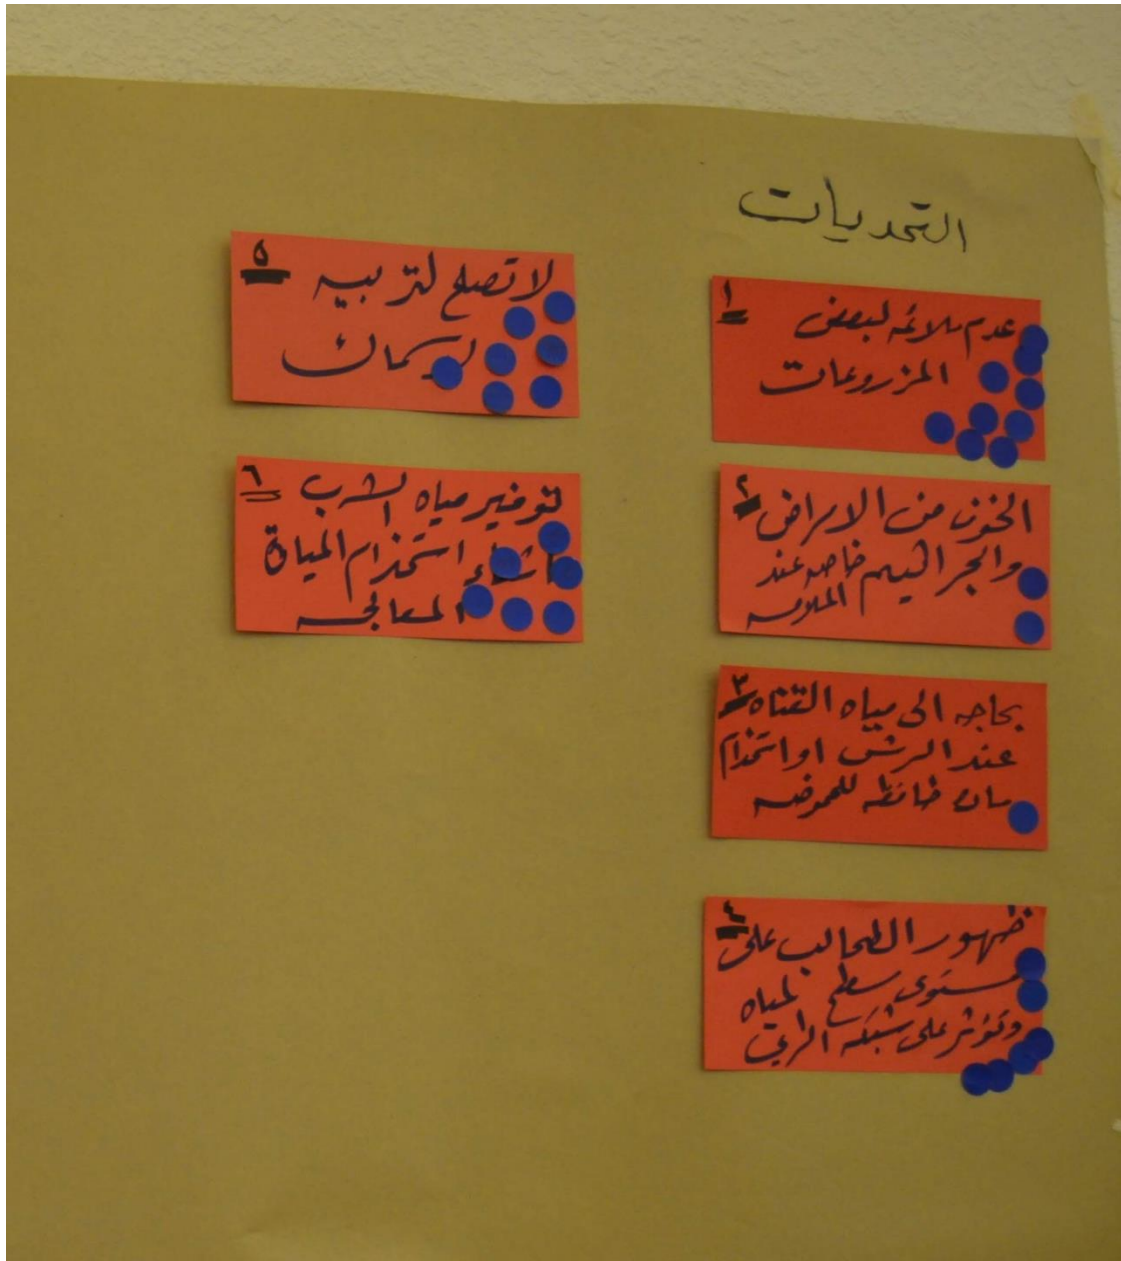 التحديات
١ عدم ملائمه لبعض
المزروعات
٢ الخوف من الامراض
والجراثيم خاصه عند
الملامسه
٣ بحاجه الى مياه القناه
عند الرش او استخدام
مواد خافظه للحموضه
٤ ظهور الطحالب على
مستوى سطح لمياه
وتؤثر على شبكه الري
٥ لا تصلح لتربيه
الاسماك
٦ توفير مياه الشرب
اثناء استخدام المياة
المعالجه